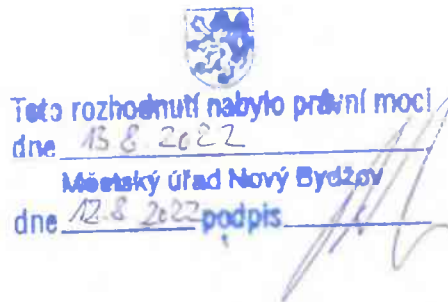 Toto rozhodnutí nabylo právní moci
dne 13 8. 2022
Městský úřad Nový Bydžov
dne 12.8 2022 podpis